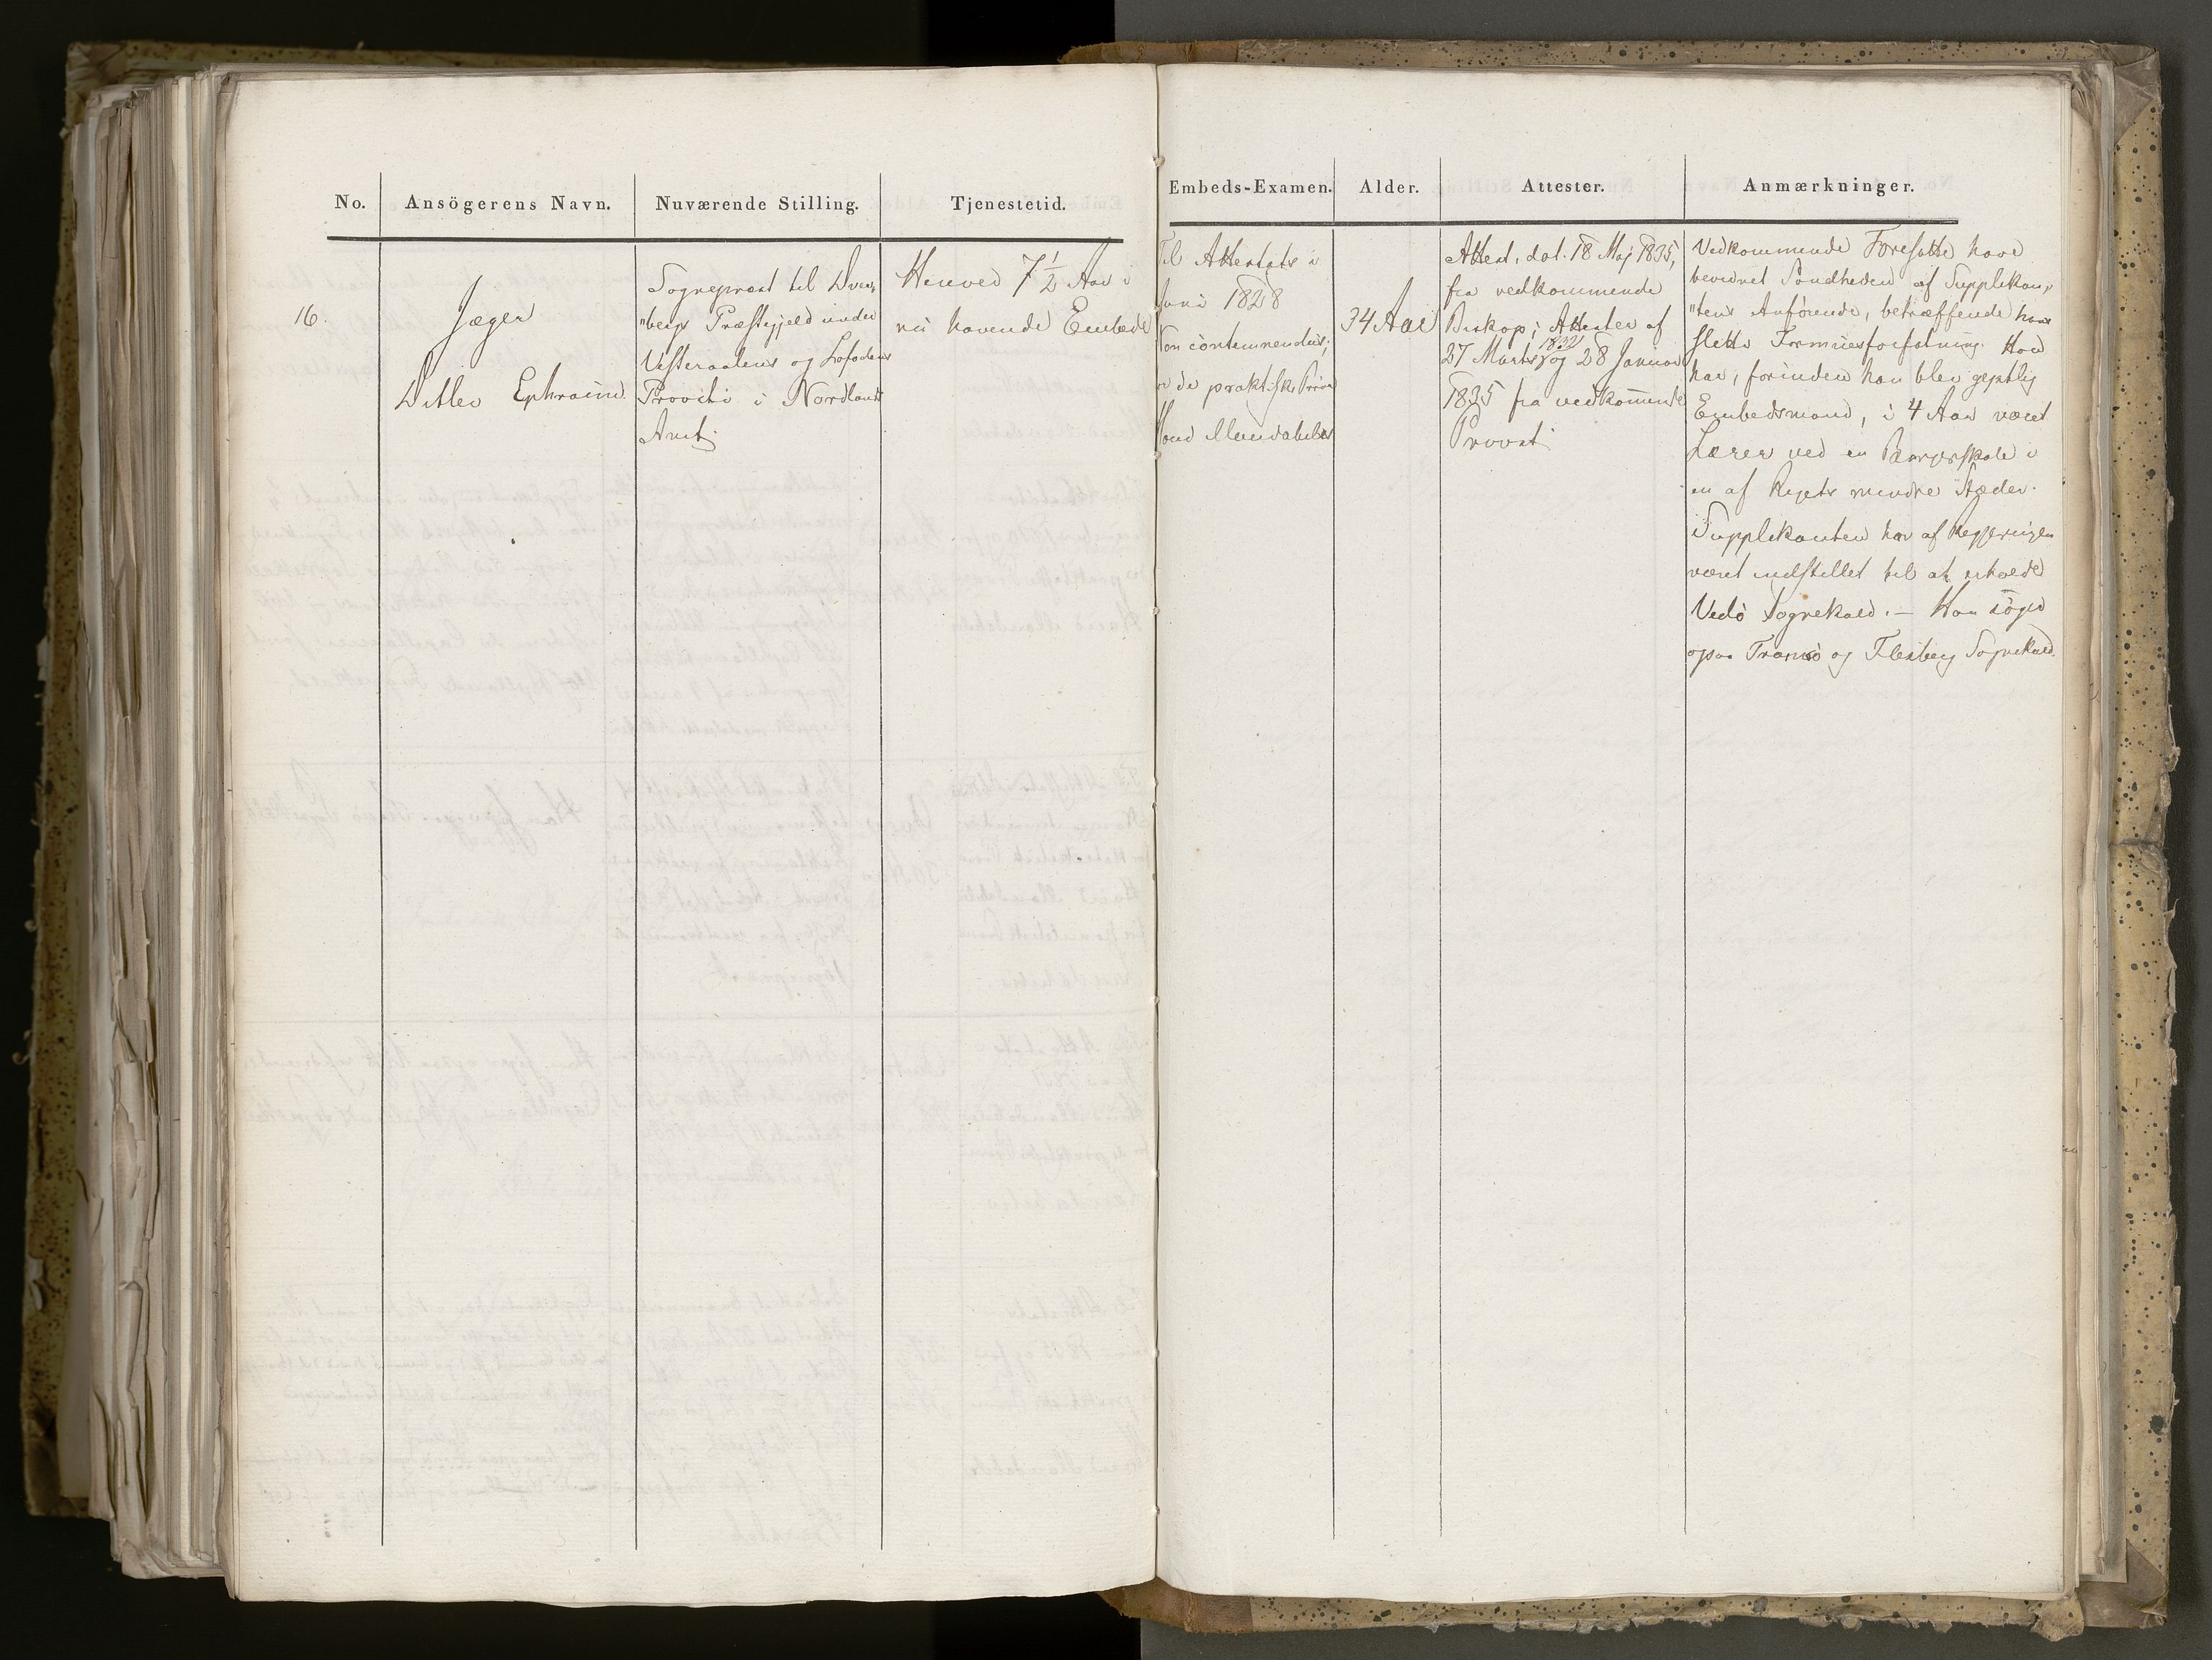 No.
Ansögerens Navn.
Nuværende Stilling.
Tjenestetid.
Embeds-Examen.
Alder.
Attester.
Anmærkninger.
16.
Jæger
Ditlev Ephraim.
Sognepræst til Dver„
„bergs Præstegjeld under
Vesteraalens og Lofodens
Provsti i Nordlands
Amt.
Henved 7½ Aar i
nu havende Embede
Til Attestats i
Juni 1828
Non contemnendus;
de praktiske Prøver
Haud illaudabilis
34 Aar
Attest, dat. 18 Maj 1835,
fra vedkommende
Biskop; Attester af
27 Marts 1832 og 28 Januar
1835 fra vedkommende
Provst.
Vedkommende Foresatte have
bevidnet Sandheden af Supplikan„
„tens Anførende, betræffende hans
slette Formuesforfatning. Han
har, forinden han blev gejstlig
Embedsmand, i 4 Aar været
Lærer ved en Borgerskole i
en af Rigets mindre Stæder.
Supplikanten har af Regjeringen
været indstillet til at erholde
Vedø Sognekald. — Han søger
ogsaa Tromsø og Flesberg Sognekald.